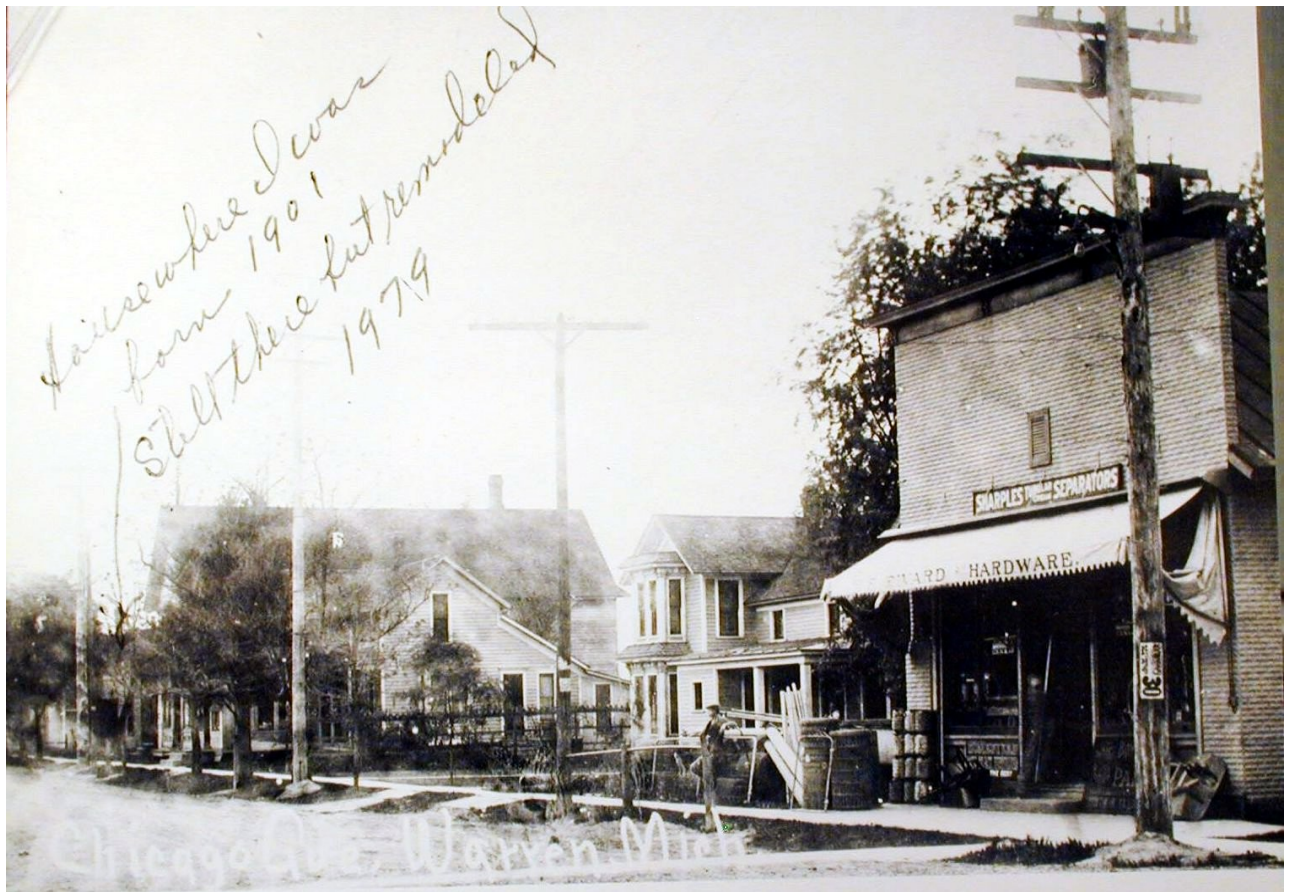 House where I was
born 1901
Still there but remodeled
1979
SHARPLES SEPARATORS
HARDWARE.
30
Chicago Ave, Warren, Mich.